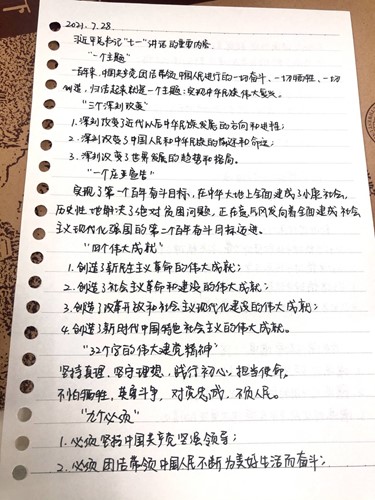 2021.7.28
习近平总书记"七一"讲话的重要内容
"一个主题"
一百年来,中国共产党团结带领中国人民进行的一切奋斗、一切牺牲、一切
创造,归结起来就是一个主题:实现中华民族伟大复兴。
"三个深刻改变"
1.深刻改变了近代以后中华民族发展的方向和进程;
2.深刻改变了中国人民和中华民族的前途和命运;
3.深刻改变了世界发展的趋势和格局。
"一个庄严宣告"
实现了第一个百年奋斗目标,在中华大地上全面建成了小康社会,
历史性地解决了绝对贫困问题,正在意气风发向着全面建成社会
主义现代化强国的第二个百年奋斗目标迈进。
"四个伟大成就"
1.创造了新民主主义革命的伟大成就;
2.创造了社会主义革命和建设的伟大成就;
3.创造了改革开放和社会主义现代化建设的伟大成就;
4.创造了新时代中国特色社会主义的伟大成就。
"32个字的伟大建党精神"
坚持真理、坚守理想,践行初心、担当使命,
不怕牺牲、英勇斗争,对党忠诚、不负人民。
"九个必须"
1.必须坚持中国共产党坚强领导;
2.必须团结带领中国人民不断为美好生活而奋斗;